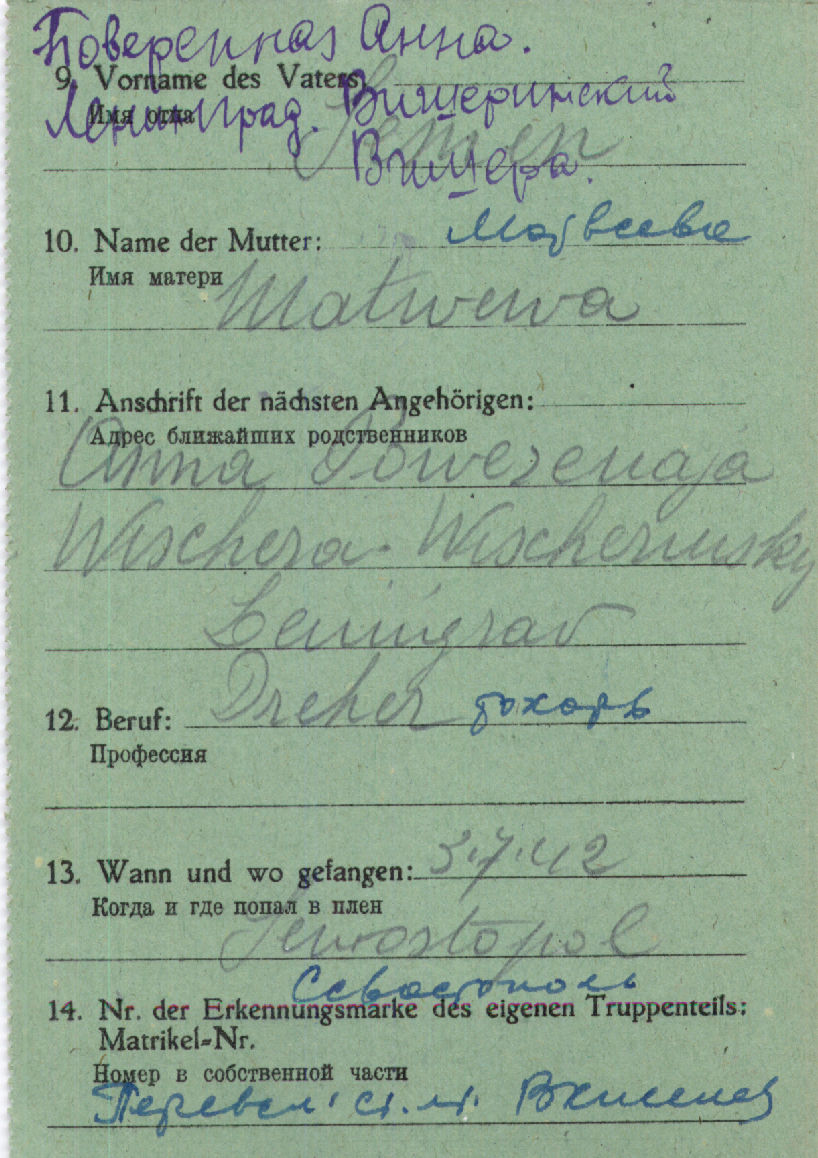 Поверенная Анна.
9. Vorname des Vaters
Ленинград. Вишеринский
Имя отца Semen
Вишера.
10. Name der Mutter: Матвеева
Имя матери
Matwewa
11. Anschrift der nächsten Angehörigen:
Адрес ближайших родственников
Anna Powerenaja
Wischera. Wischerinsky
Leningrad
12. Beruf: Dreher токарь
Профессия
13. Wann und wo gefangen: 3.7.42
Когда и где попал в плен
Sewostopol
Севастополь
14. Nr. der Erkennungsmarke des eigenen Truppenteils:
Matrikel-Nr.
Номер в собственной части
Перевел: ст. лт.